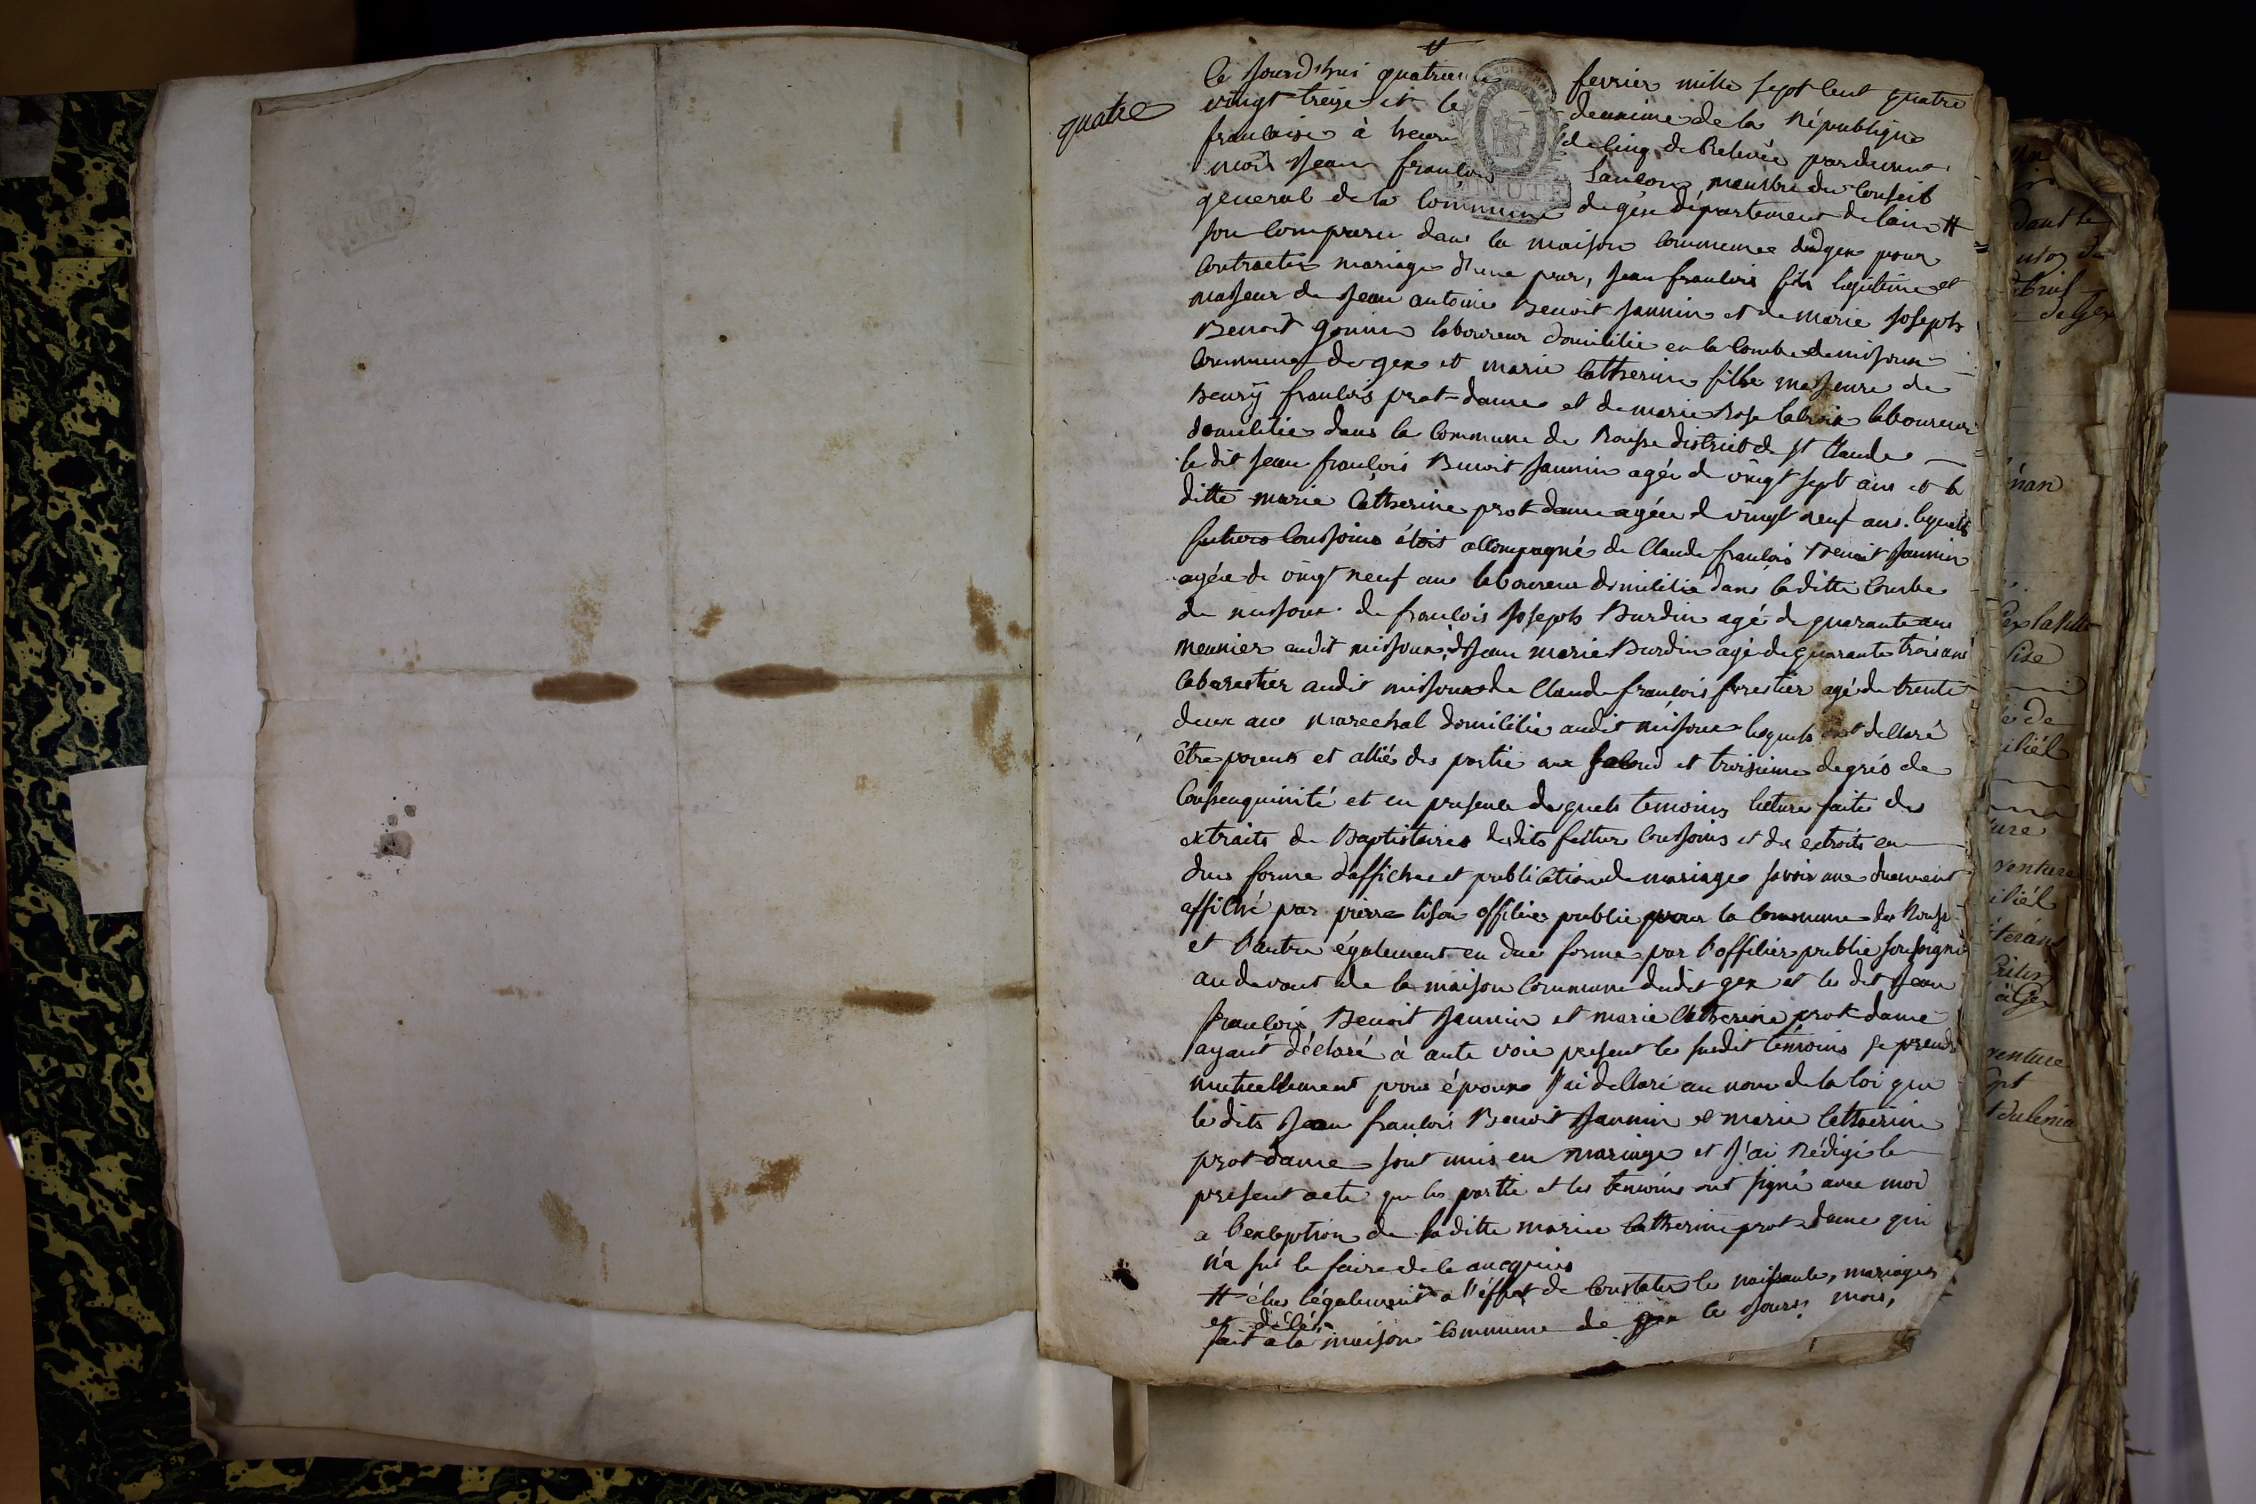 quatre
Ce Jourd'hui quatrieme fevrier mille sept cent quatre
vingt-treize et le deuxieme de la République
francaise à heure de cinq de Relevée pardevant
moi Jean françois Lançon, membre du Conseil
general de la Commune de gex département de lain #
son Comparu dans la maison Commune dudgex pour
Contracter mariage d'une par, Jean francois fils légitime et
majeur de Jean antoine Benoit Jannin et de marie Joseph
Benoit gonin laboureur domicilié en la Combe de mijoux
Commune de gex et marie Catherine fille majeure de
henrÿ francois prot-dame et de marie Rose laboureur
domicilié dans la Commune de district de St Claude
le dit Jean françois Benoit Jannin agée d vingt sept ans et la
ditte marie Catherine prot dame agée d vingt neuf ans. lequels
futuro Conjoins étois accompagné de Claude francois Benoit Jannin
agée de vingt neuf ans laboureur domicilié dans laditte Combe
de mijoux. de francois Joseph Burdin agé de quarante ans
meunier audit mijoux, d Jean marie Burdin agé de quarante trois ans
Cabaretier audit mijoux de Claude francois forestier agé de trente
deux ans marechal domicilié audit mijoux lesquels ont déclaré
être parens et allié des partie aux second et troisieme degrés de
Consenguinité et en presence desquels temoins lecture faite des
extraits de Baptistaires desdits futur Conjoins et des extraits en
due forme daffiche et publication de mariage savoir une duement
affiché par pierre officier public pour la Commune des
et l'autre également en due forme par l'officier public soussigné
au devant de la maison Commune dudit gex et les dit Jean
francois Benoit Jannin et marie Catherine prot dame
ayant déclaré à aute voie present les susdit temoins se prendre
mutuellement pour époux J'ai déclaré au nom de la loi que
le dits Jean francois Benoit Jannin et marie Catherine
prot dame sont unis en mariage et J'ai Rédigé le
present acte que les partie et les temoins ont signé avec moi
a l'exception de laditte marie Catherine prot dame qui
n'a su le faire de ce
# élu légalement a l'éffet de Constater les naissance, mariages
et décés
fait a la maison Commune de gex les Jours, mois,